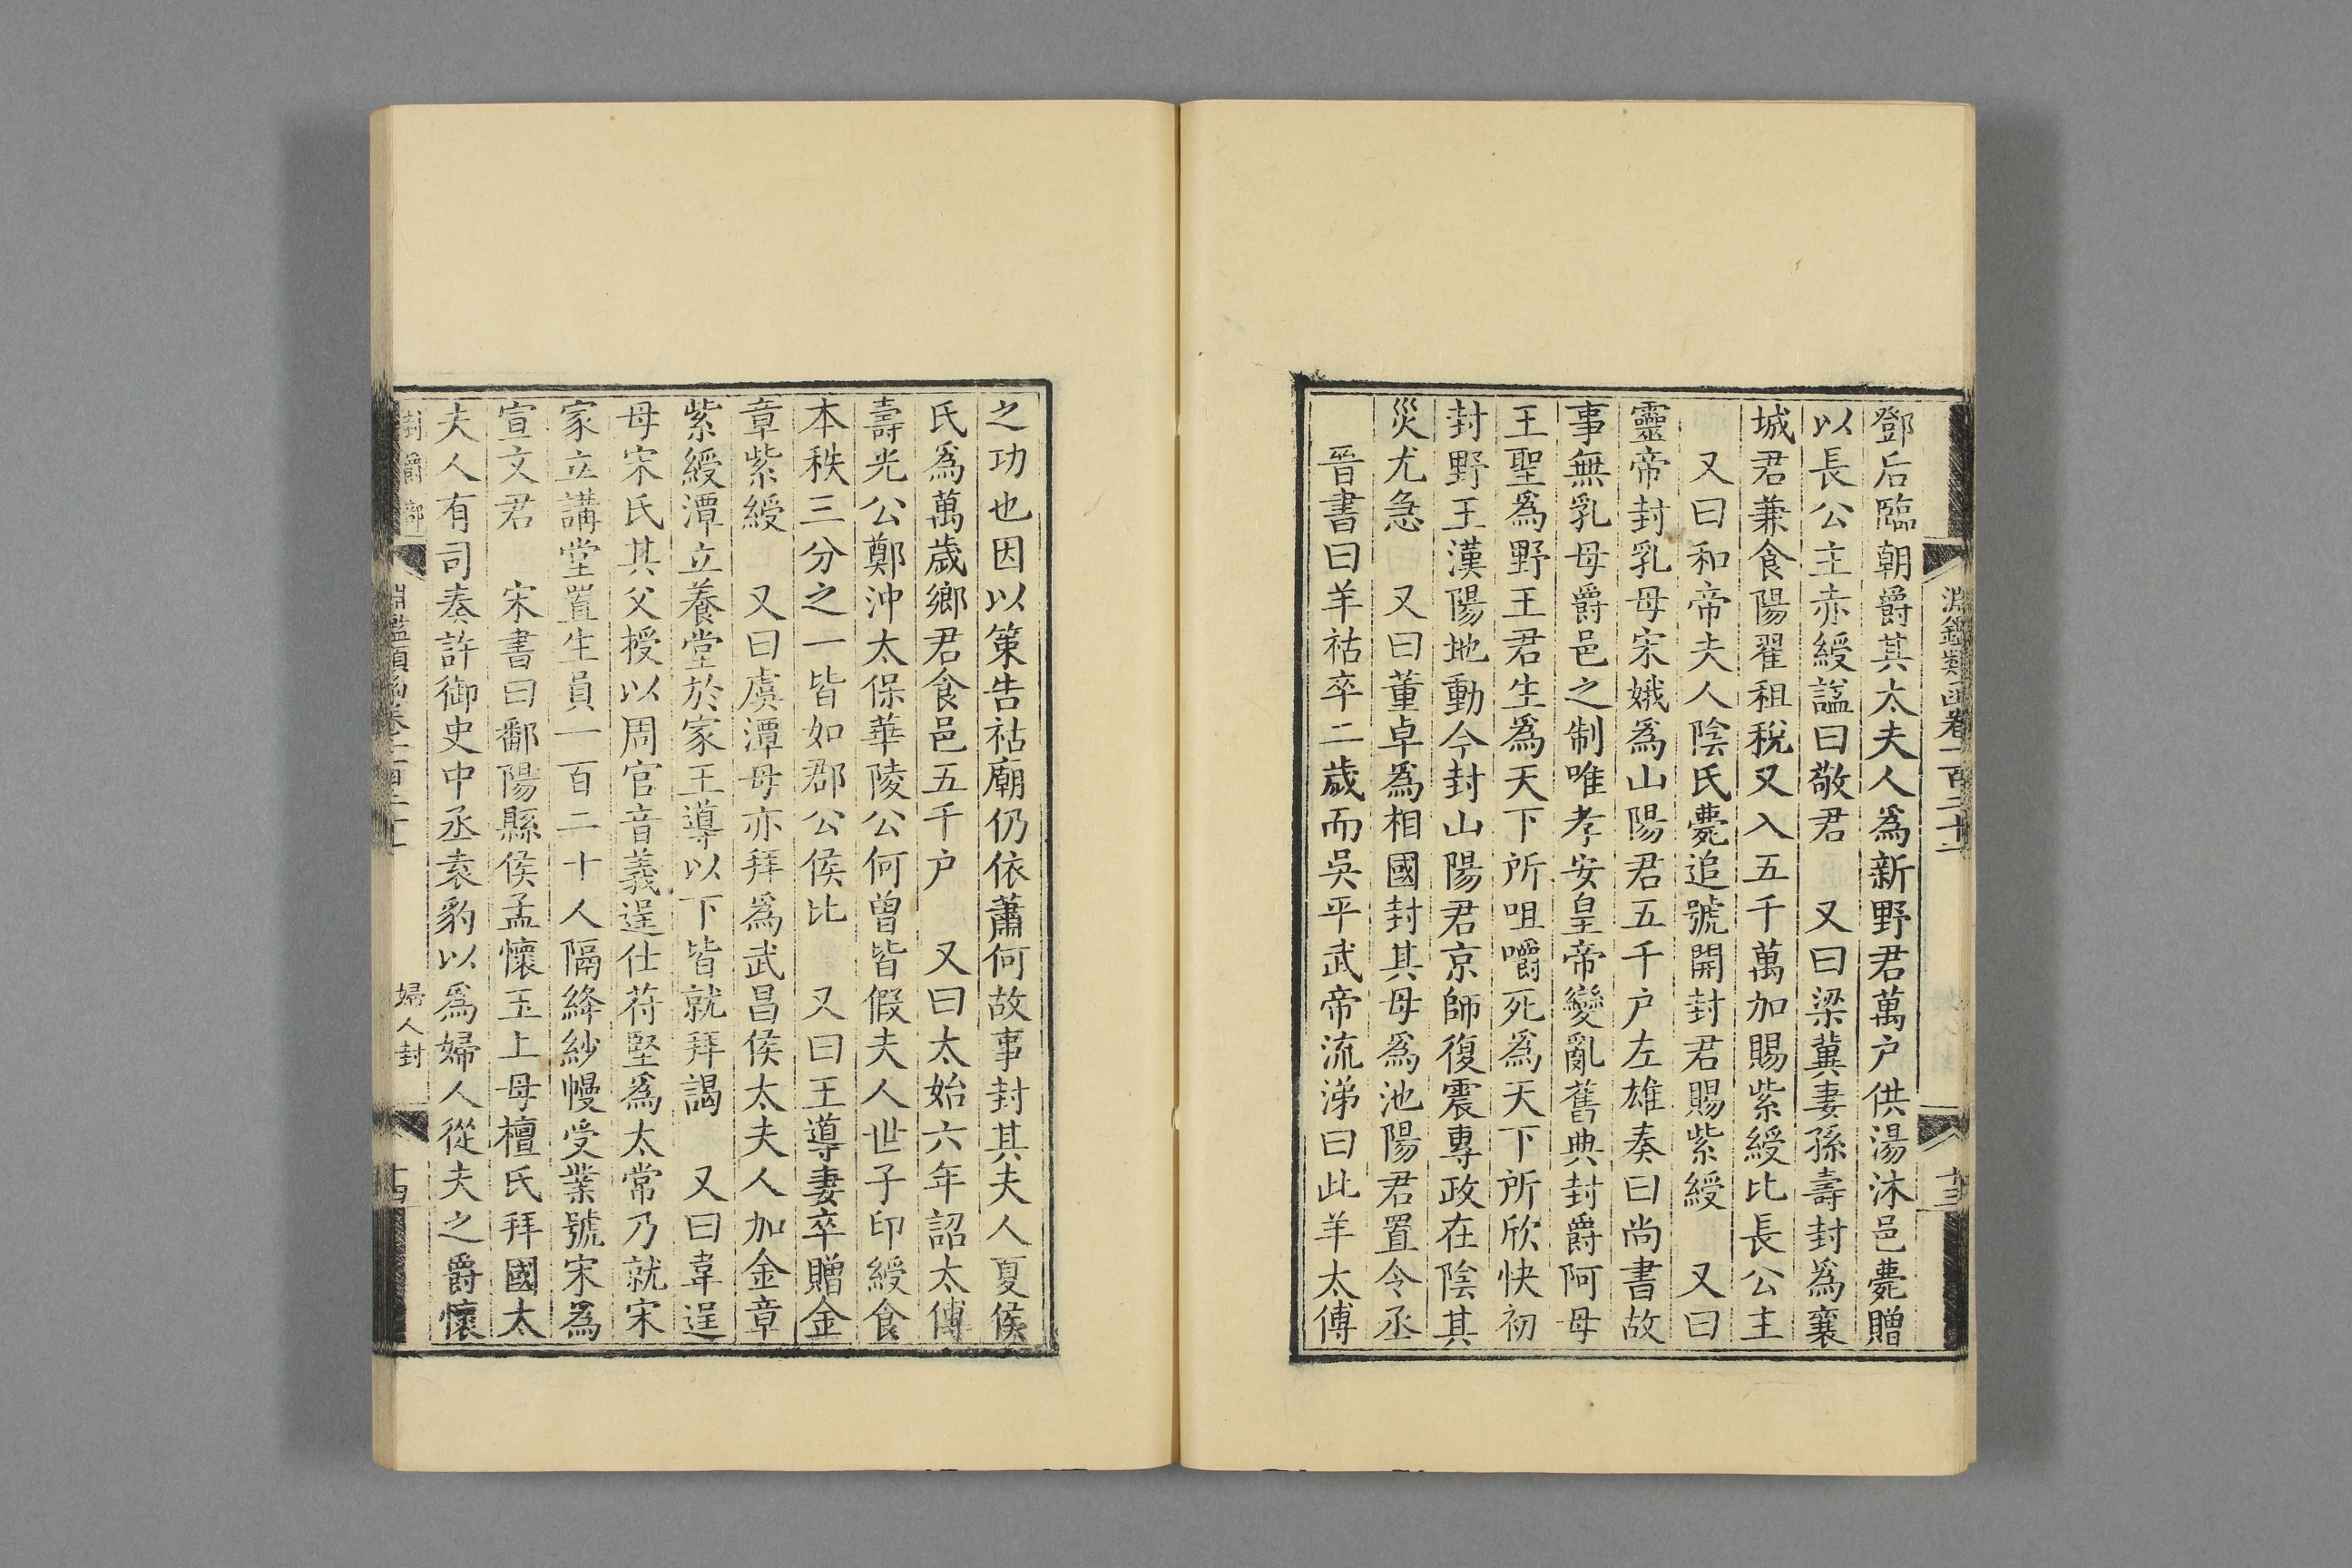 淵鑑類函卷一百二十一
十三
鄧后臨朝爵其太夫人爲新野君萬户供湯沐邑薨贈
以長公主赤綬諡曰敬君 又曰梁冀妻孫壽封爲襄
城君兼食陽翟租稅又入五千萬加賜紫綬比長公主
又曰和帝夫人陰氏薨追號開封君賜紫綬 又曰
靈帝封乳母宋娥爲山陽君五千户左雄奏曰尚書故
事無乳母爵邑之制唯孝安皇帝變亂舊典封爵阿母
王聖爲野王君生爲天下所咀嚼死爲天下所欣快初
封野王漢陽地動今封山陽君京師復震專政在陰其
災尤急 又曰董卓爲相國封其母爲池陽君置令丞
晉書曰羊祜卒二歲而吳平武帝流涕曰此羊太傅
之功也因以策告祜廟仍依蕭何故事封其夫人夏侯
氏爲萬歲鄉君食邑五千户 又曰太始六年詔太傅
壽光公鄭沖太保華陵公何曾皆假夫人世子印綬食
本秩三分之一皆如郡公侯比 又曰王導妻卒贈金
章紫綬 又曰虞潭母亦拜爲武昌侯太夫人加金章
紫綬潭立養堂於家王導以下皆就拜謁 又曰韋逞
母宋氏其父授以周官音義逞仕苻堅爲太常乃就宋
家立講堂置生員一百二十人隔絳紗幔受業號宋爲
宣文君 宋書曰鄱陽縣侯孟懷玉上母檀氏拜國太
夫人有司奏許御史中丞袁豹以爲婦人從夫之爵懷
封爵部
婦人封
十四